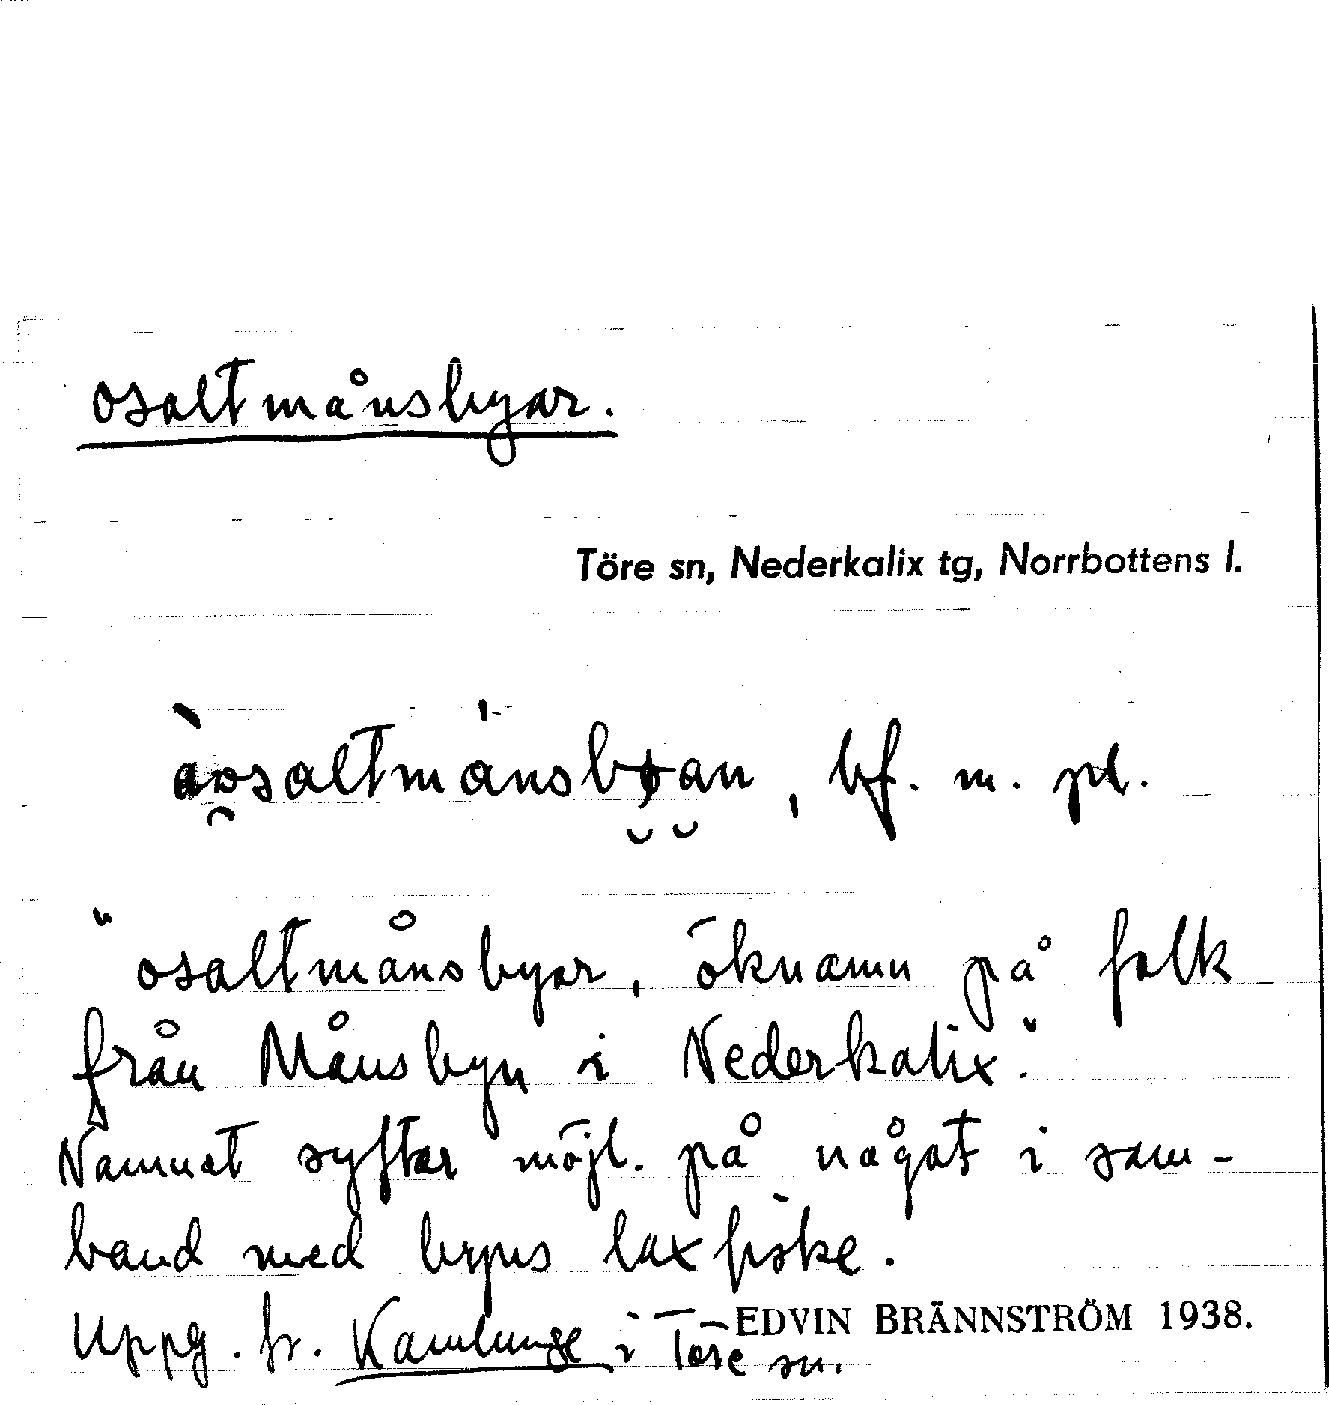 osaltmånsbyar.
Töre sn, Nederkalix tg, Norrbottens l.
bf. m. pl.
"osaltmånsbyar, öknamn på folk
från Månsbyn i Nederkalix".
Namnet syftar möjl. på något i sam-
band med byns laxfiske.
Uppg. fr. Kamlunge i Töre sn.
EDVIN BRÄNNSTRÖM 1938.